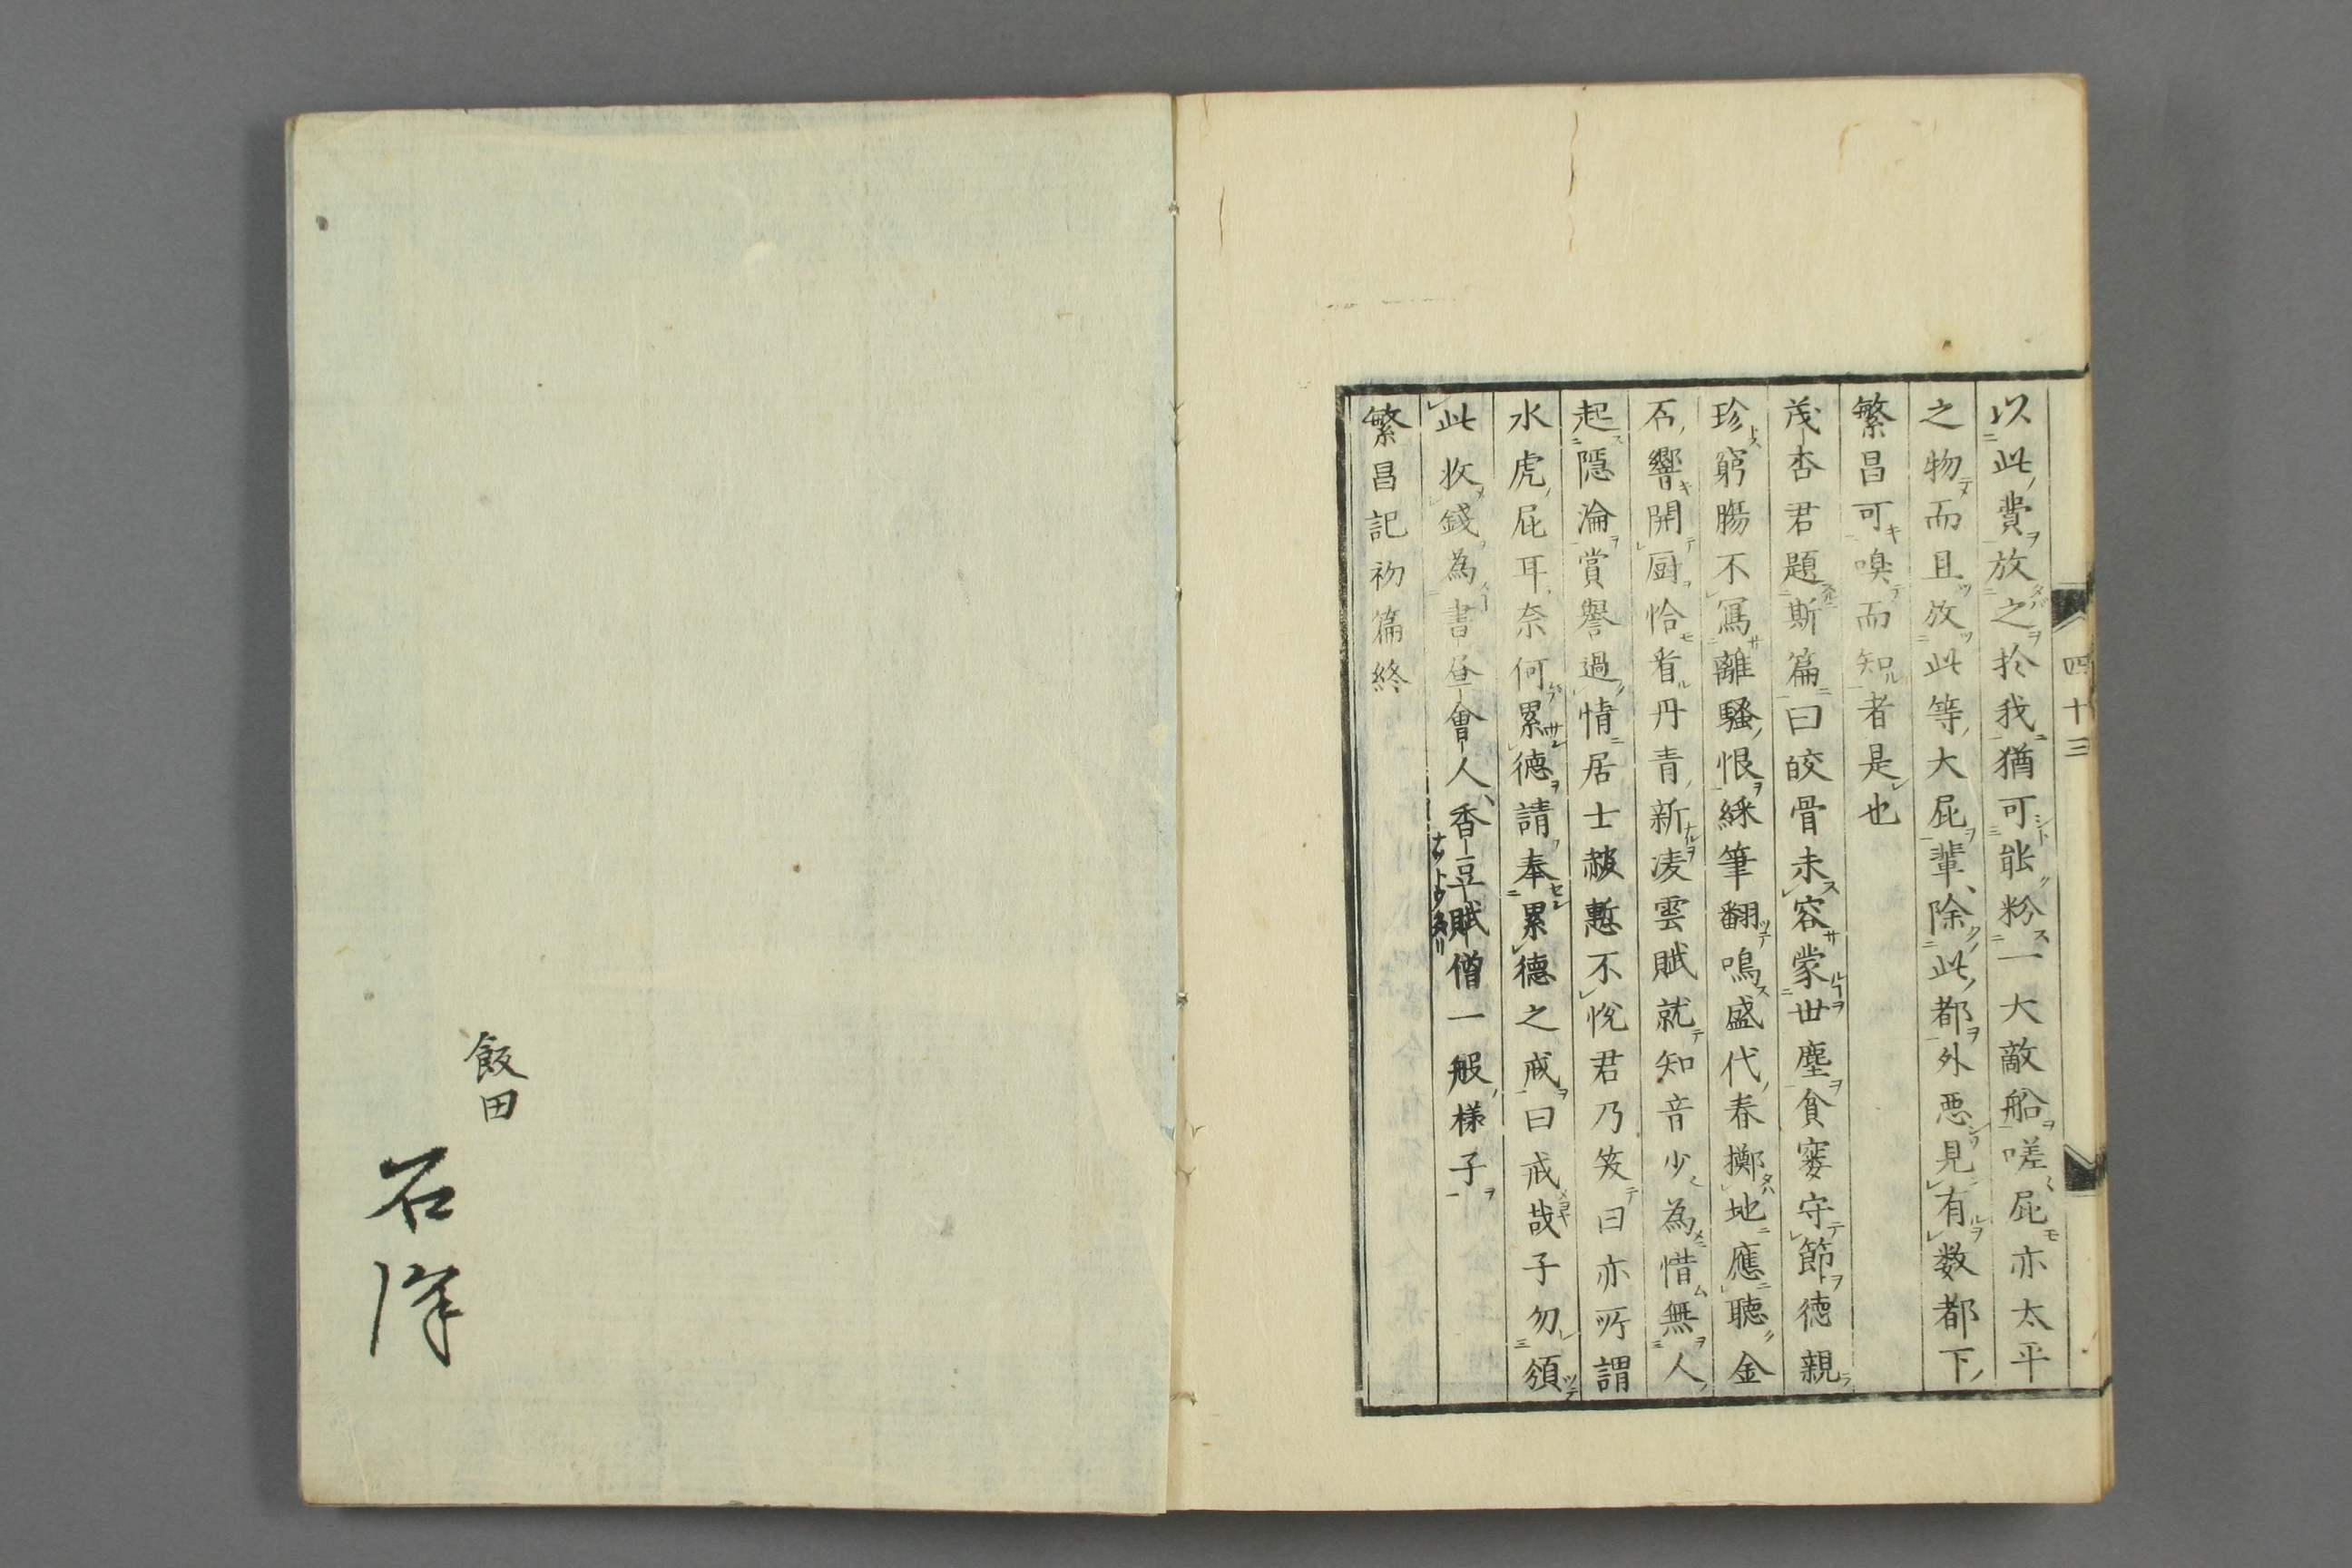 四十三
以此費放之於我猶可能粉一大敵船嗟屁亦太平
之物而且放此等大屁輩除此都外悪見有数都下
繁昌可嗅而知者是也
茂杏君題斯篇曰皎骨未容蒙世塵貧窶守節徳親
珍窮腸不寫離騒恨綵筆翻鳴盛代春擲地應聽金
石響開厨恰看丹青新凌雲賦就知音少為惜無人
起隠淪賞譽過情居士赧慙不悦君乃笑曰亦所謂
水虎屁耳奈何累徳請奉累徳之戒曰戒哉子勿須
此收錢為書畫會人香豆賦僧一般様子
繁昌記初篇終
飯田
石洋